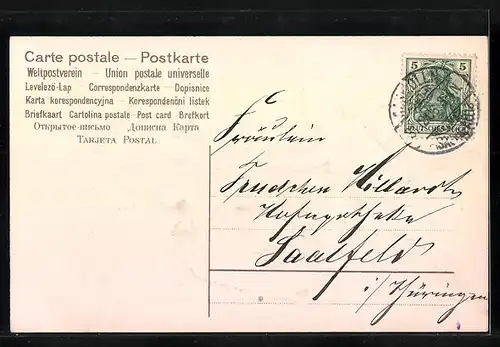 Carte postale — Postkarte
Weltpostverein – Union postale universelle
Levelező-Lap – Correspondenzkarte – Dopisnice
Karta korespondencyjna – Korespondenční lístek
Briefkaart – Cartolina postale – Post card – Brefkort
Открытое-письмо – Дописна Карта
Tarjeta Postal
5 5
DEUTSCHES REICH
Fräulein
Trudchen
Hofapotheke
Saalfeld
i/Thüringen